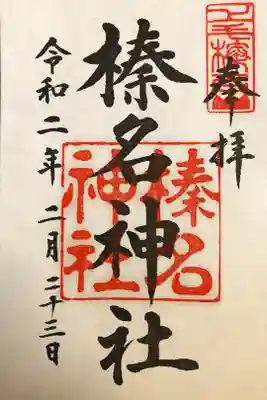 奉拝
榛名神社
榛名神社
令和二年二月二十三日